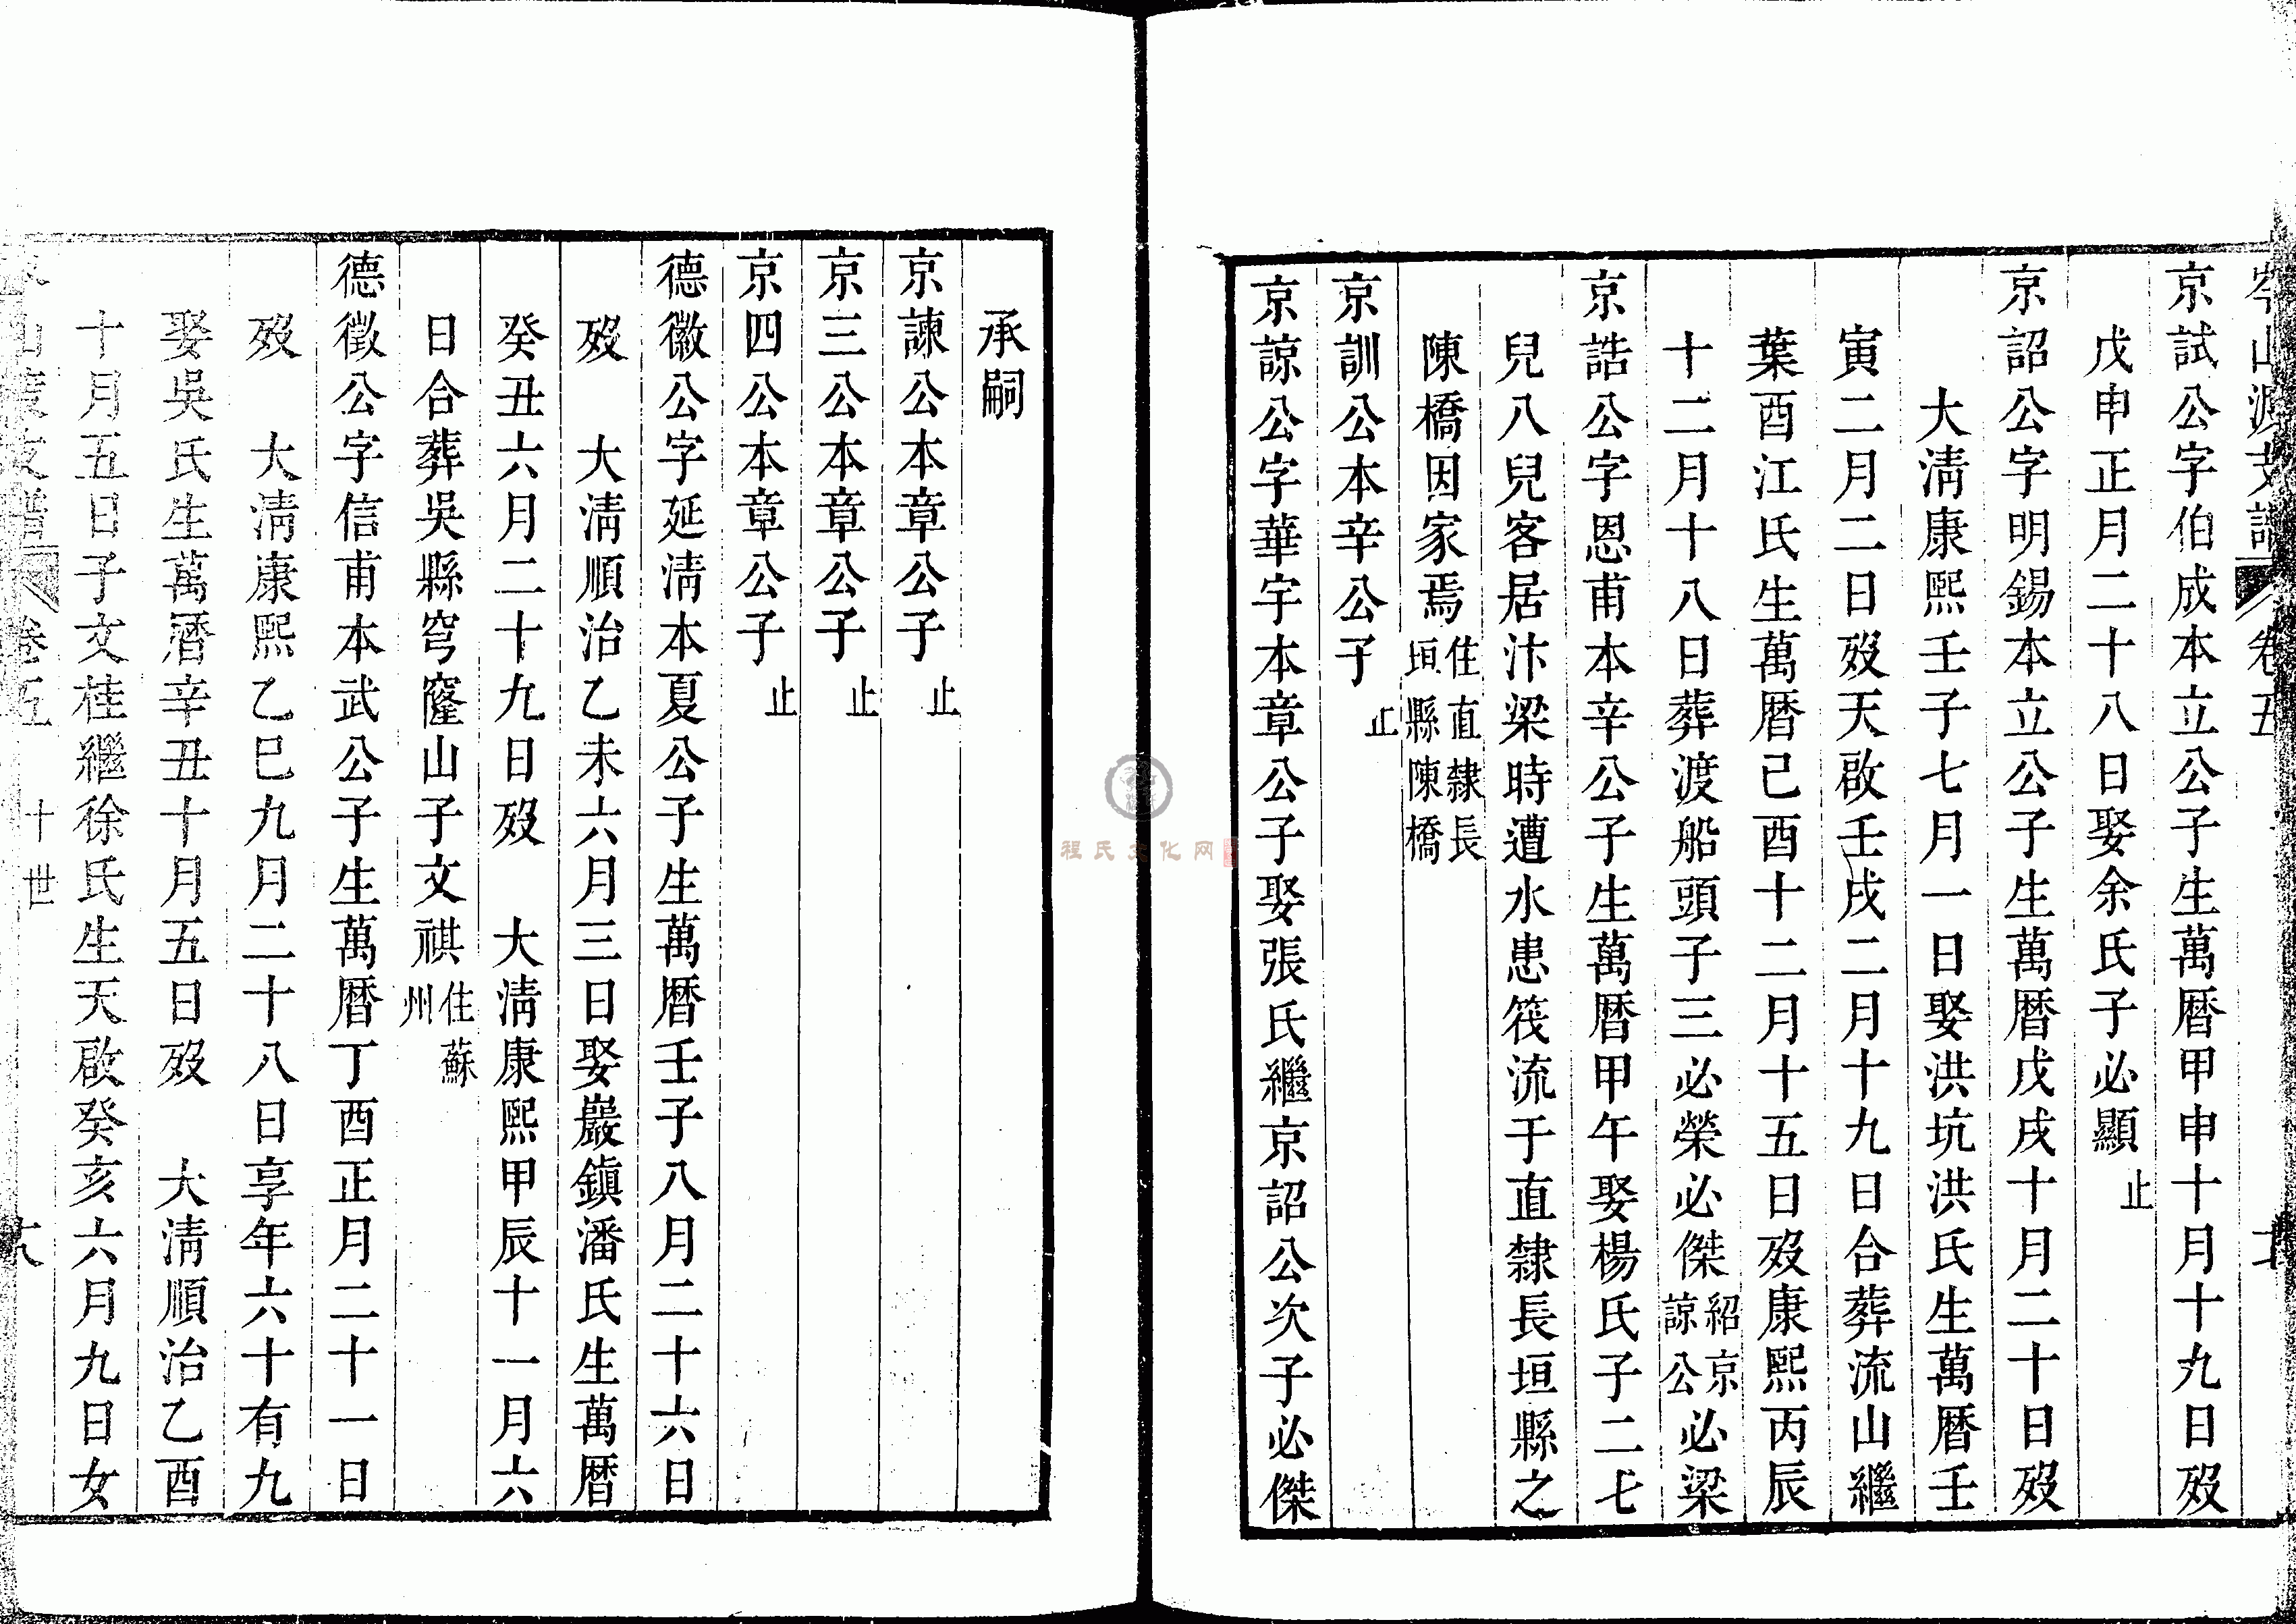 岑山渡支譜 卷五
京試公字伯成本立公子生萬曆甲申十月十九日歿
戊申正月二十八日娶余氏子必顯 止
京詔公字明錫本立公子生萬曆戊戌十月二十日歿
大淸康熙壬子七月一日娶洪坑洪氏生萬曆壬
寅二月二日歿天啟壬戌二月十九日合葬流山繼
葉酉江氏生萬曆己酉十二月十五日歿康熙丙辰
十二月十八日葬渡船頭子三必榮必傑 紹京諒公 必梁
京誥公字恩甫本辛公子生萬曆甲午娶楊氏子二七
兒八兒客居汴梁時遭水患筏流于直隸長垣縣之
陳橋因家焉 住直隸長垣縣陳橋
京訓公本辛公子 止
京諒公字華宇本章公子娶張氏繼京詔公次子必傑
承嗣
京諫公本章公子 止
京三公本章公子 止
京四公本章公子 止
德徽公字延淸本夏公子生萬曆壬子八月二十六日
歿 大淸順治乙未六月三日娶巖鎮潘氏生萬曆
癸丑六月二十九日歿 大淸康熙甲辰十一月六
日合葬吳縣穹窿山子文祺 住蘇州
德徵公字信甫本武公子生萬曆丁酉正月二十一日
歿 大淸康熙乙巳九月二十八日享年六十有九
娶吳氏生萬曆辛丑十月五日歿 大淸順治乙酉
十月五日子文桂繼徐氏生天啟癸亥六月九日女
山渡支譜 卷五 十世 十八
程氏文化网